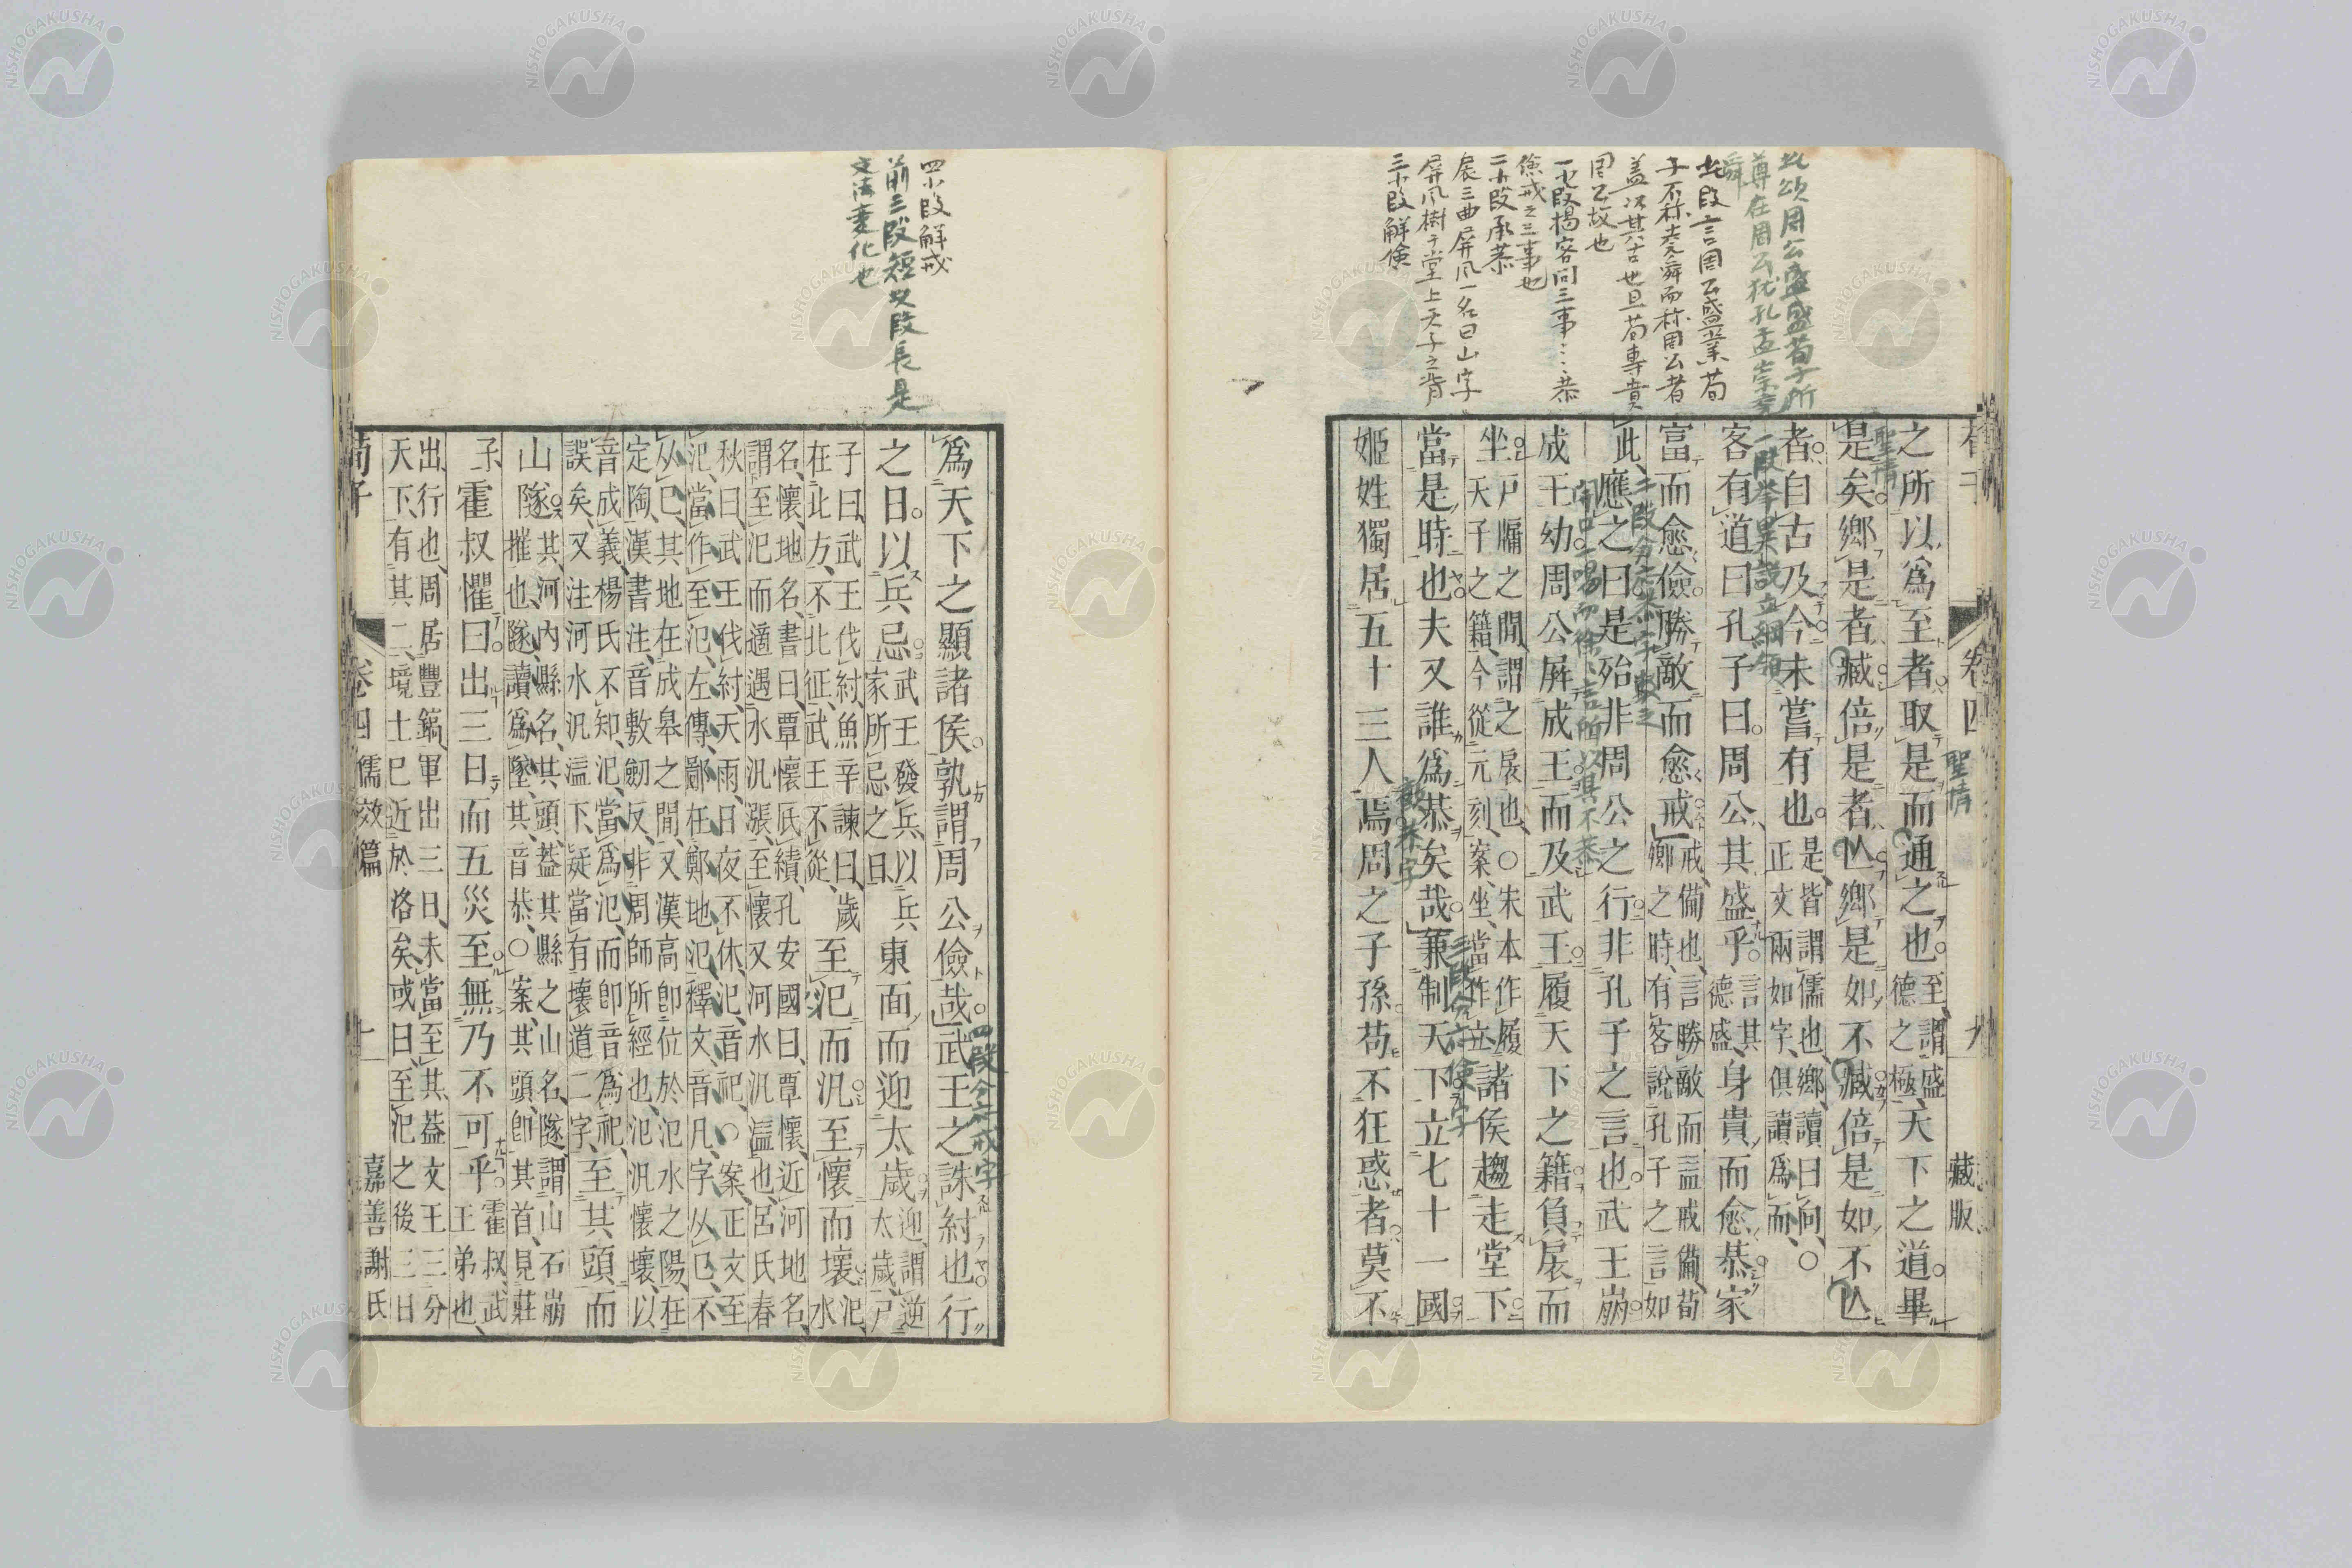 荀子
卷四
九
藏版
之所以爲至者取是而通之也。至謂盛德之極天下之道畢
是矣鄉是者臧倍是者亾鄉是如不臧倍是如不亾
者自古及今未嘗有也。是皆謂儒也鄉讀曰向○正文兩如字俱讀爲而
客有道曰孔子曰周公其盛乎。言其德盛身貴而愈恭家
富而愈儉勝敵而愈戒戒備也言勝敵而益戒備荀卿之時有客說孔子之言如
此應之曰是殆非周公之行非孔子之言也武王崩
成王幼周公屛成王而及武王履天下之籍負扆而
坐戸牖之間謂之扆也○朱本作履天子之籍今從元刻案坐當作立諸侯趨走堂下
當是時也夫又誰爲恭矣哉兼制天下立七十一國
姬姓獨居五十三人焉周之子孫苟不狂惑者莫不
爲天下之顯諸侯孰謂周公儉哉武王之誅紂也行
之日以兵忌武王發兵以兵家所忌之日東面而迎太歲迎謂逆太歲尸
子曰武王伐紂魚辛諫曰歲在北方不北征武王不從至汜而汎至懷而壞汜水
名懷地名書曰覃懷厎績孔安國曰覃懷近河地名謂至汜而適遇水汎漲至懷又河水汎溢也呂氏春
秋曰武王伐紂天雨日夜不休汜音祀○案正文至汜當作至氾左傳鄭在鄭地氾釋文音凡字从㔾不
从巳其地在成皋之間又漢高卽位於汜水之陽在定陶漢書注音敷劒反非周師所經也氾汎懷壞以
音成義楊氏不知氾當爲汜而卽音爲祀誤矣又注河水汎溢下疑當有壞道二字至共頭而
山隧共河內縣名共頭蓋共縣之山名隧謂山石崩摧也隧讀爲墜共音恭○案共頭卽共首見莊
子霍叔懼曰出三日而五災至無乃不可乎霍叔武王弟也
出行也周居豐鎬軍出三日未當至共蓋文王三分天下有其二境土已近於洛矣或曰至汜之後三日
荀子
卷四儒效篇
十
嘉善謝氏
此頌周公盛盛荀子所
尊在周公猶孔孟宗堯
舜
此段言周公盛業荀
子不称尭舜而称周公者
蓋以其六古也且荀專貴
周公故也
一小段揭客問三事…恭
儉戒之三事也
二小段承恭
扆三曲屏風一名曰山字
屏風樹于堂上天子之背
三小段解儉
四小段解戒
前三段短以段長是
文法変化也
聖情
聖情
一段挙業哉立綱領
二段分応恭字
三段分応儉字
四段分応戒字